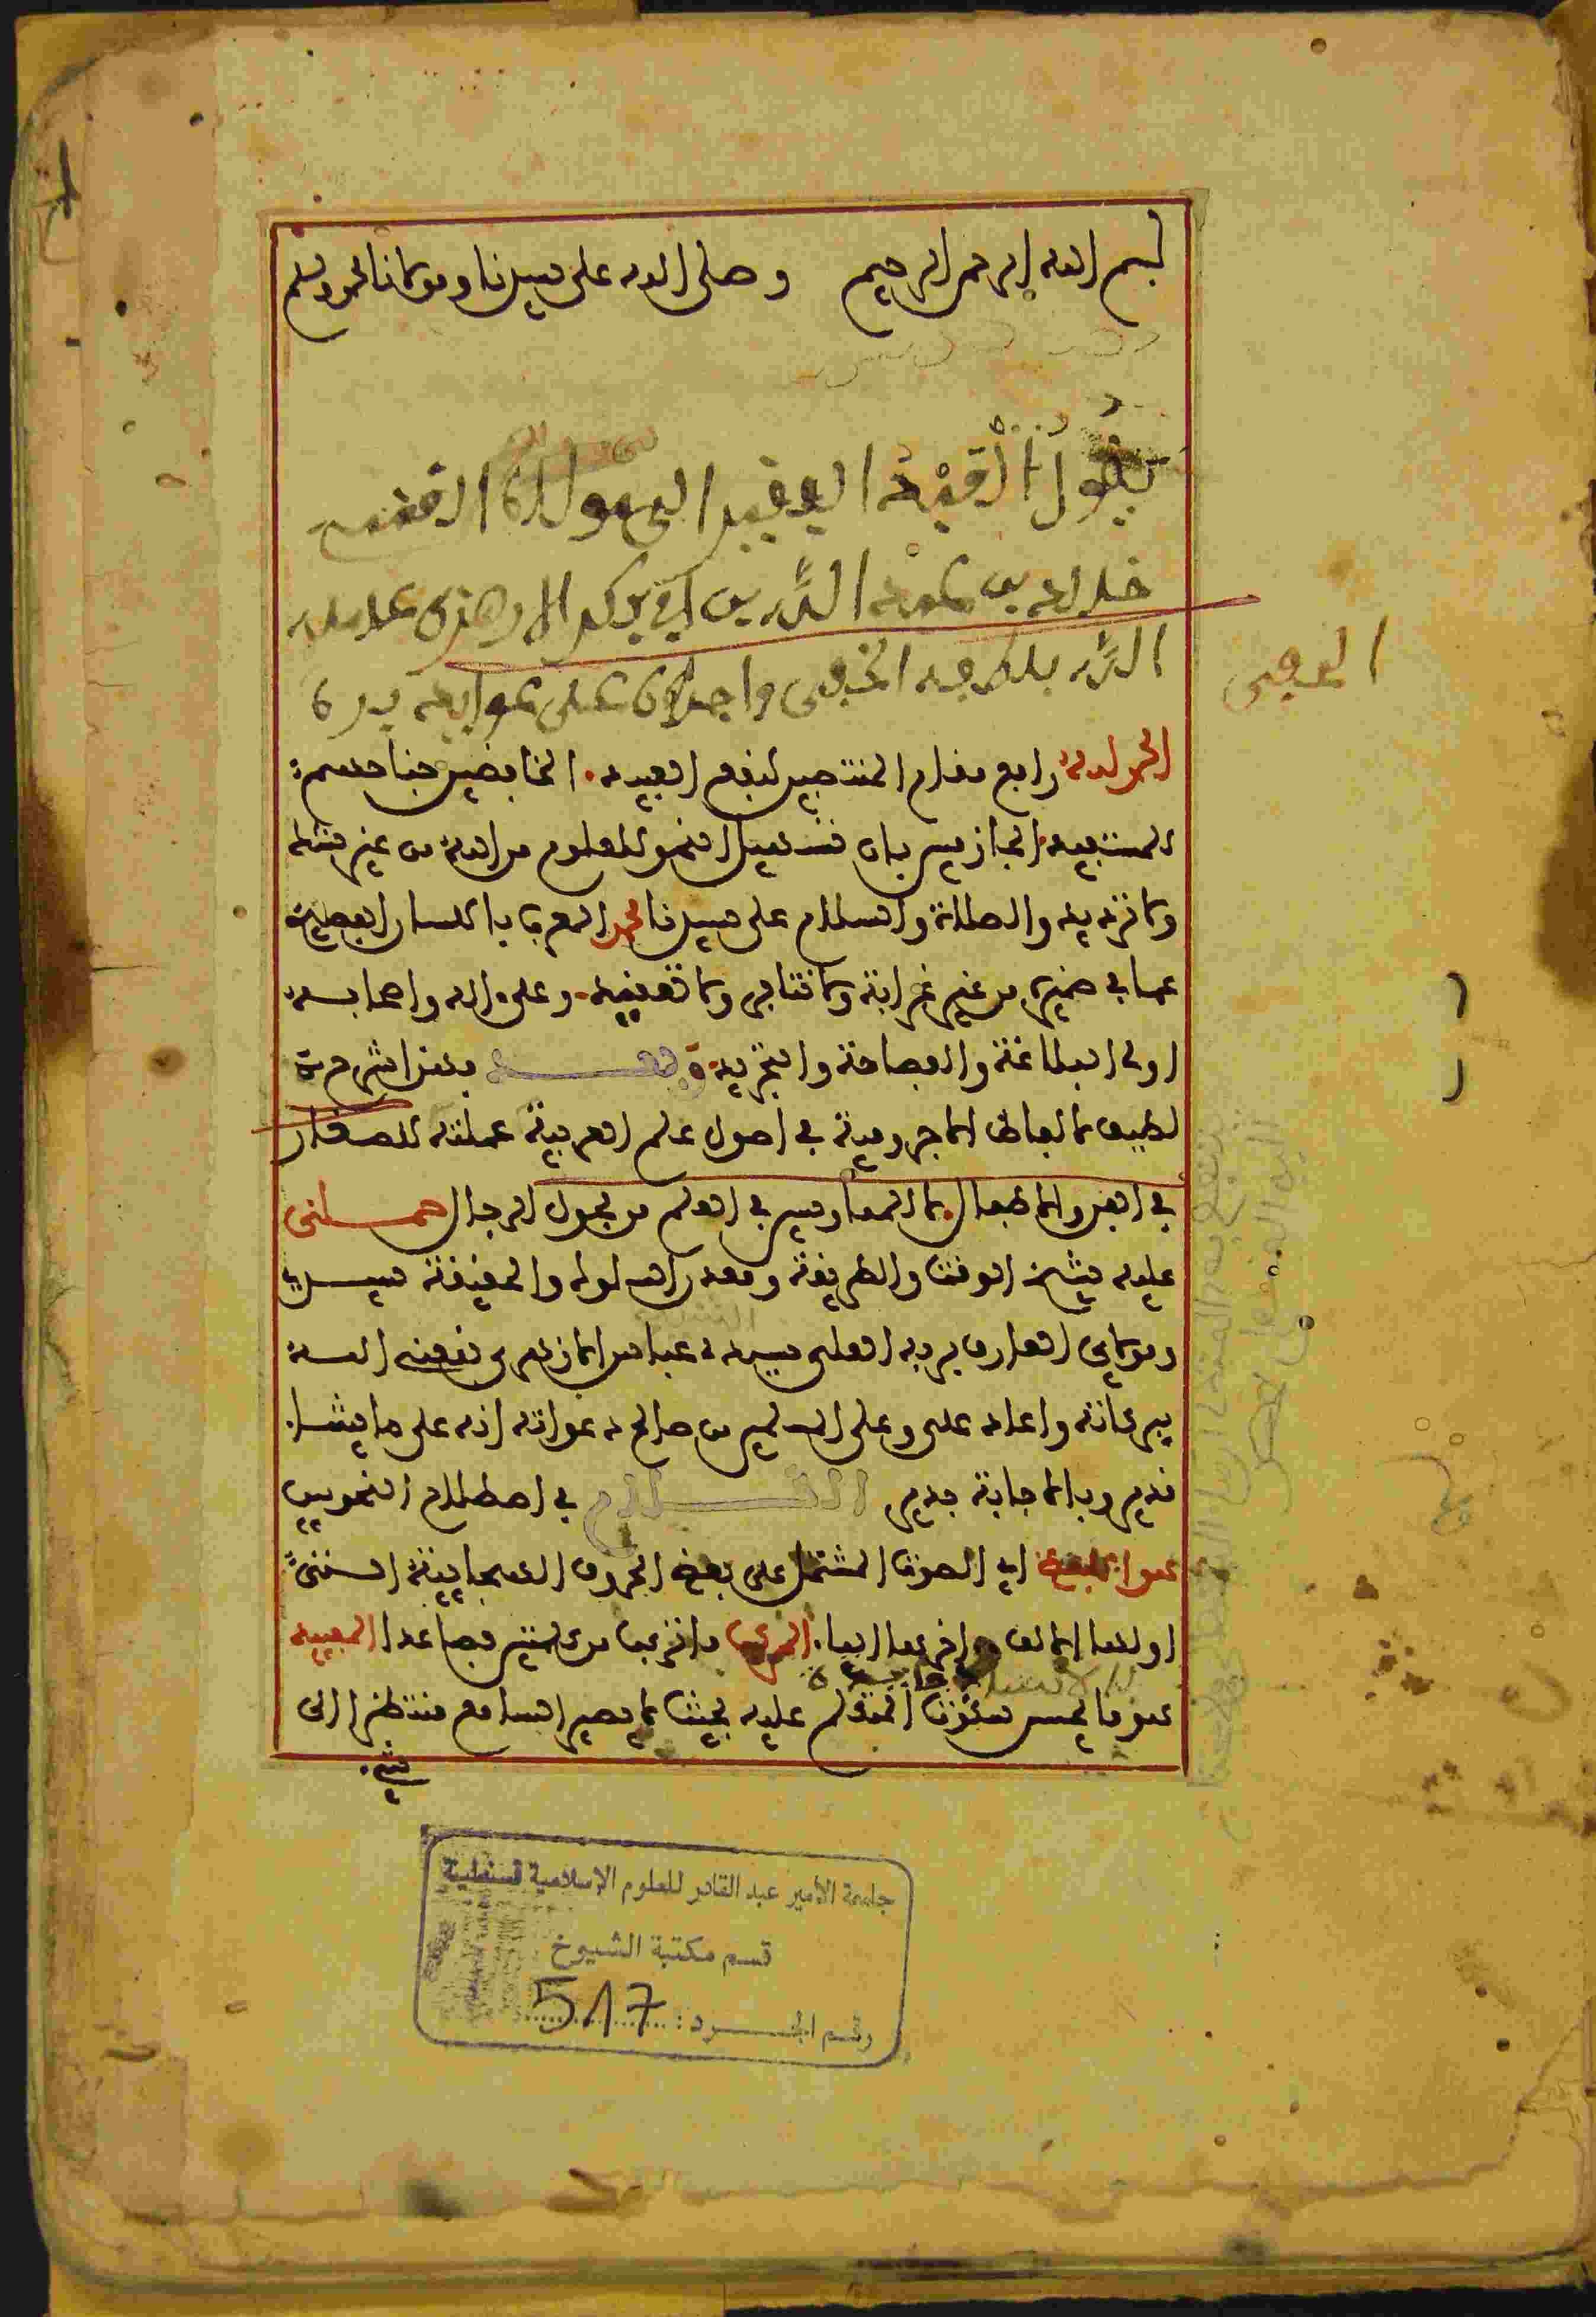 بسم الله الرحمن الرحيم وصلى الله على سيدنا ومولانا محمد وسلم
يقول الفقيه الفقير الى مولاه الغني
خالد بن عبد الله بن ابي بكر الازهري عامله
الله بلطفه الخفي واجراه على عوايد بره
الحفي
الحمد لله رافع مقام المنتصبين لنفع العبيد. الخافضين جناحهم
للمستفيد. الجازمين بان تسهيل النحو للعلوم من الله من غير شك
ولا ترديد والصلاة والسلام على سيدنا محمد المعرب باللسان الفصيح
عما في ضميره من غير غرابة ولا تنافر ولا تعقيد. وعلى اله واصحابه
اولي البلاغة والفصاحة والتجريد وبعد فهذا شرح
لطيف لالفاظ الاجرومية في اصول علم العربية عملته للصغار
في الفن والاطفال. لا للممارسين في العلم من فحول الرجال حملني
عليه شيخ الوقت والطريقة ومعدن السلوك والحقيقة سيدي
ومولاي العارف بربه العلي سيدي عباس الازهري نفعني الله
ببركاته واعاد علي وعلى المسلمين من صالح دعواته انه على ما يشاء
قدير وبالاجابة جدير الكلام في اصطلاح النحويين
هو اللفظ اي الصوت المشتمل على بعض الحروف الهجائية التي
اولها الالف واخرها الياء. المركب ما تركب من كلمتين فصاعدا المفيد
هو ما يحسن سكوت المتكلم عليه بحيث لا يصير السامع منتظرا الى
شيء
جامعة الأمير عبد القادر للعلوم الإسلامية قسنطينة
قسم مكتبة الشيوخ
رقم الجرد: 517